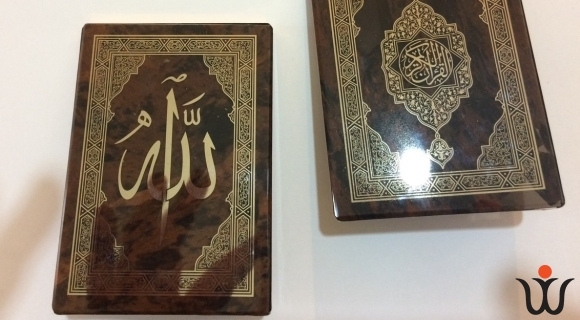 الله
القرآن الكريم